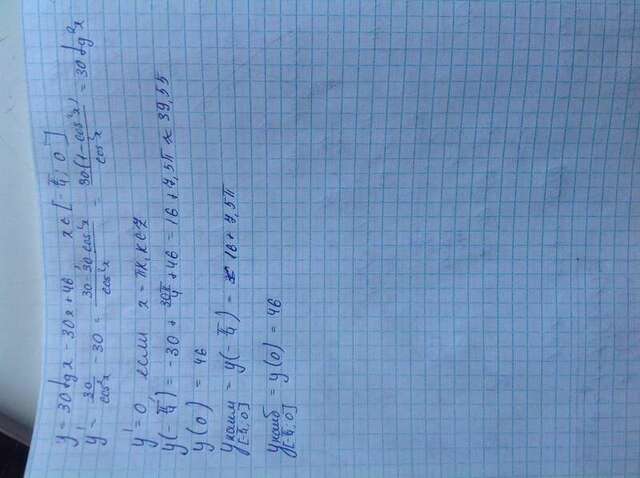 y = 30 tg x - 30x + 46 x ∈ [-π/4; 0]
y' = 30/cos²x - 30 = (30 - 30 cos²x)/cos²x = 30(1 - cos²x)/cos²x = 30 tg²x
y' = 0, если x = πk, k ∈ Z
y(-π/4) = -30 + 30π/4 + 46 = 16 + 7,5π ≈ 39,55
y(0) = 46
yнаим [-π/4; 0] = y(-π/4) = 16 + 7,5π
yнаиб [-π/4; 0] = y(0) = 46